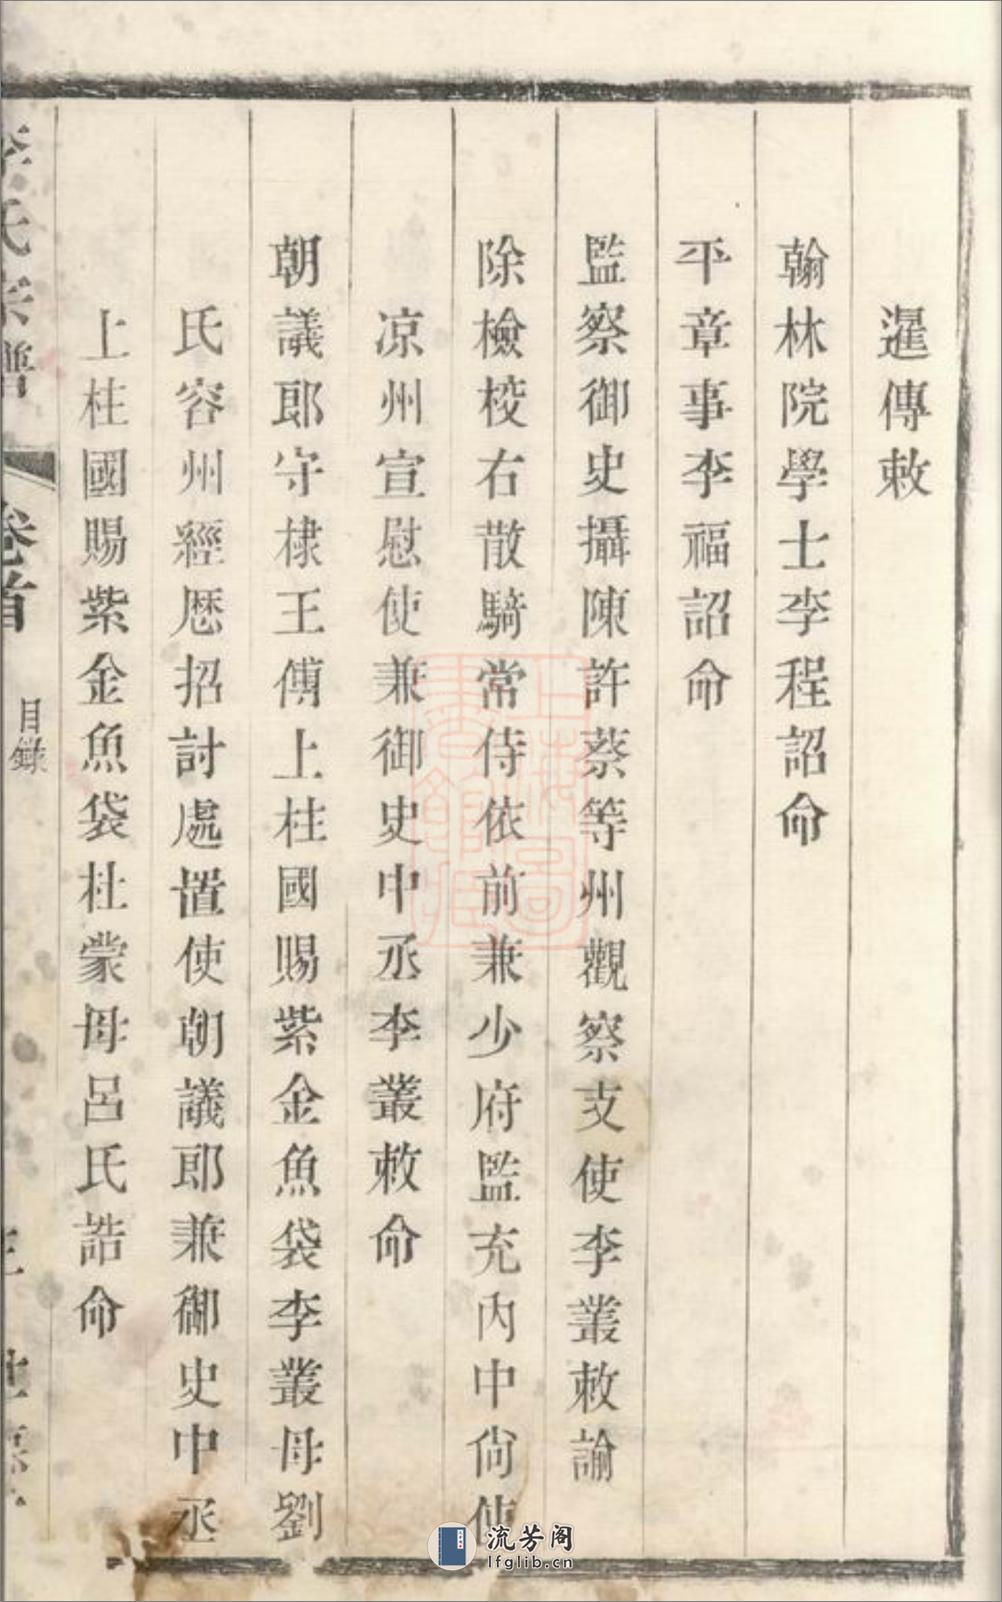 暹傳敕
翰林院學士李程詔命
平章事李福詔命
監察御史攝陳許蔡等州觀察支使李叢敕諭
除檢校右散騎常侍依前兼少府監充內中尙使
凉州宣慰使兼御史中丞李叢敕命
朝議郎守棣王傅上柱國賜紫金魚袋李叢母劉
氏容州經歷招討處置使朝議郎兼御史中丞
上柱國賜紫金魚袋杜蒙母呂氏誥命
李氏宗譜 卷首 目錄
上海圖書館藏
流芳阁
lfglib.cn